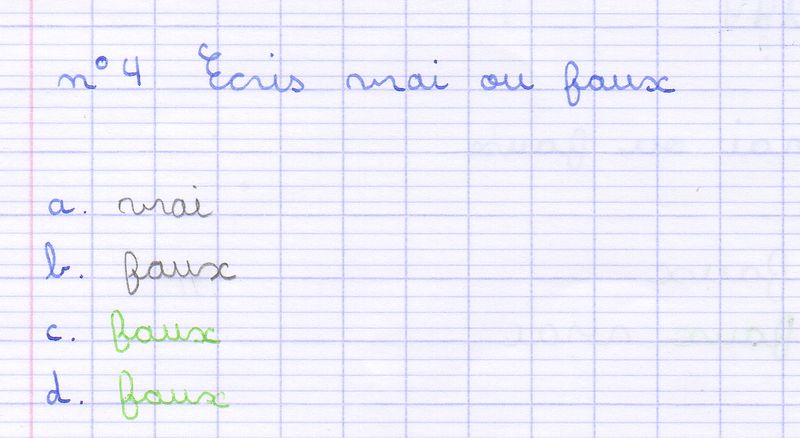 n° 4 Ecris vrai ou faux
a. vrai
b. faux
c. faux
d. faux